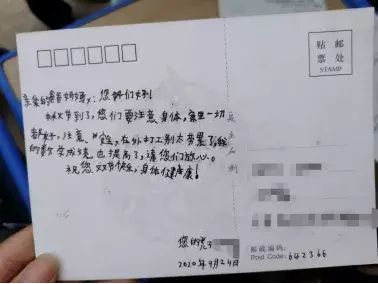 亲爱的爸妈妈,:您们们好!
节到了,您们要注意身体,家里一切
都好,注意安全,在外打工别太劳累了,我
的数学成绩也提高了,请您们放心。
祝您 节快乐,身体健康!
您的儿子
2020年4月24日
贴 邮
票 处
STAMP
邮政编码:
Post Code: 642366